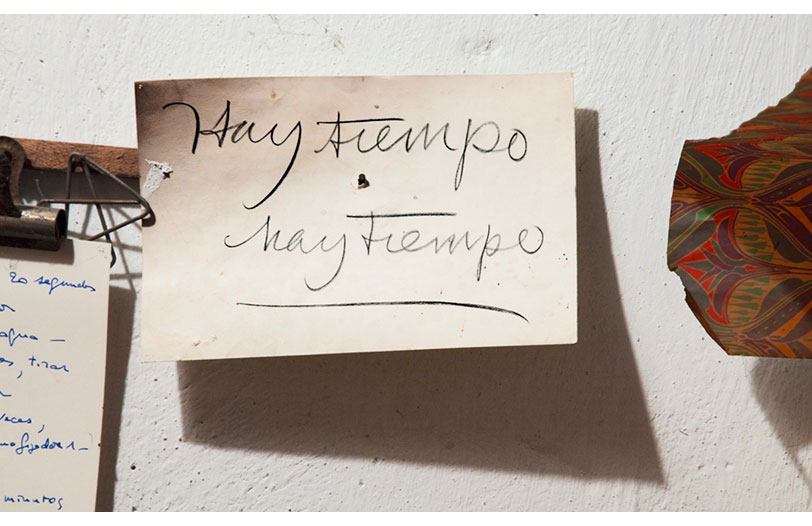 Hay tiempo
hay tiempo
20 segundos
agua –
tirar
veces,
minutos